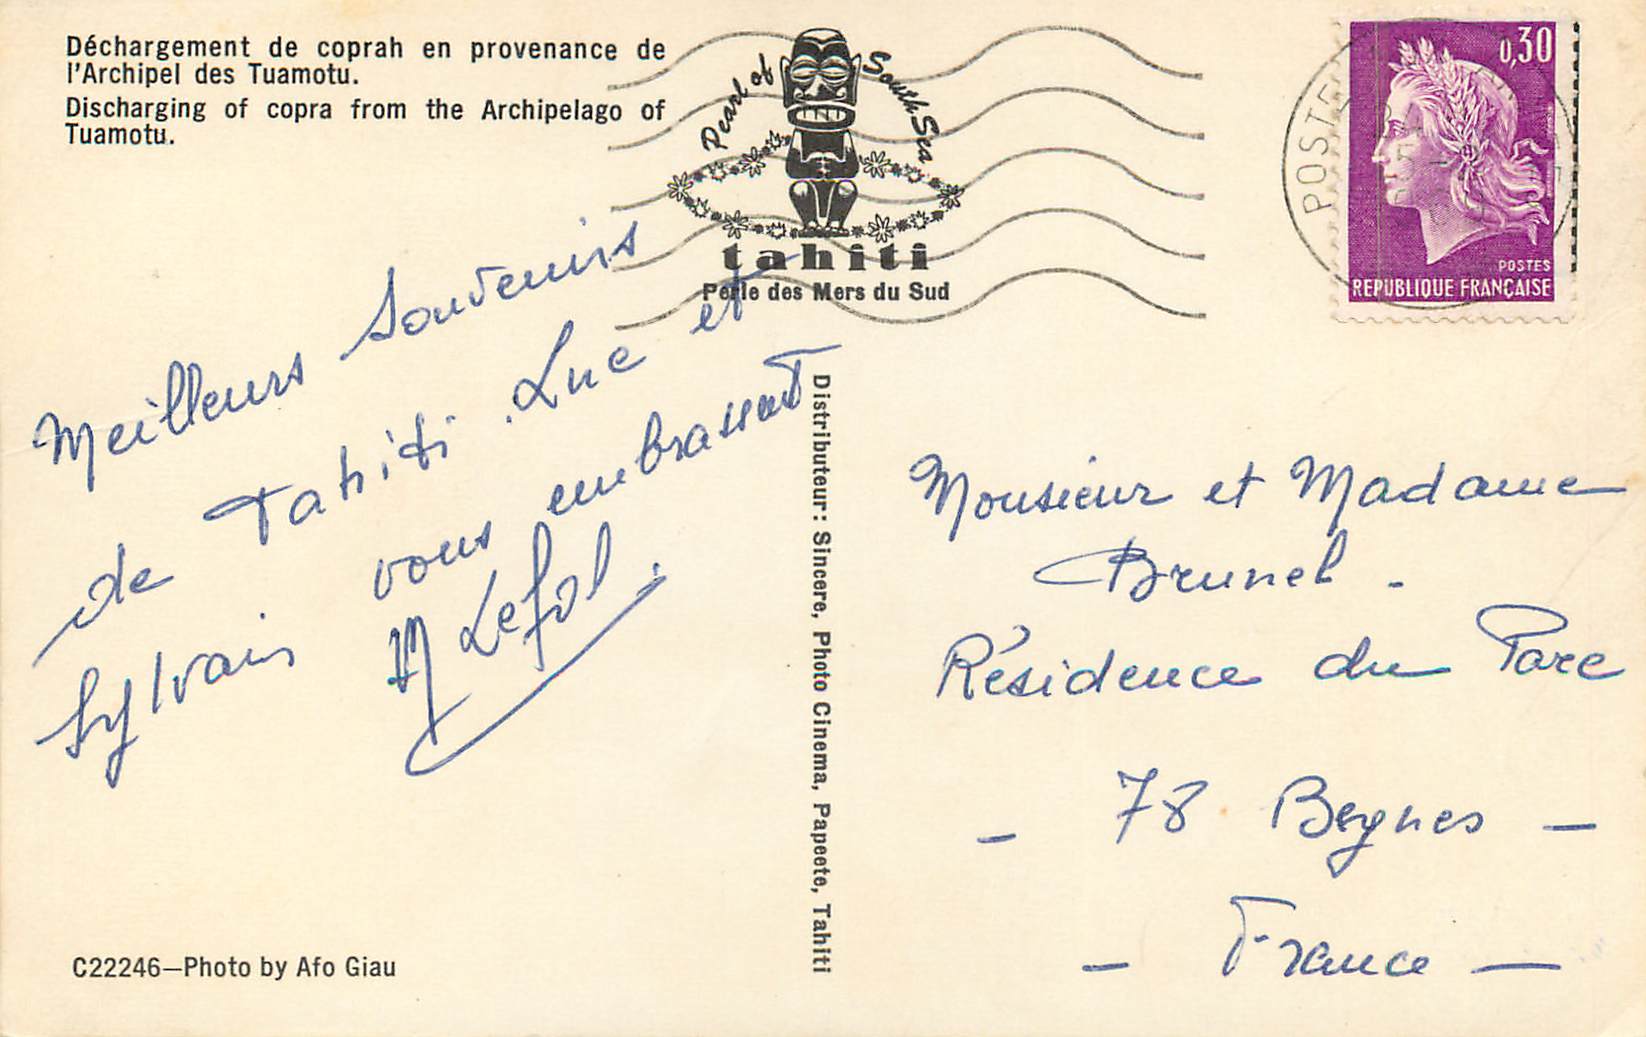 Déchargement de coprah en provenance de
l'Archipel des Tuamotu.
Discharging of copra from the Archipelago of
Tuamotu.
Pearl of South Sea
tahiti
Perle des Mers du Sud
POSTE
0,30
POSTES
REPUBLIQUE FRANÇAISE
Meilleurs Souvenirs
de Tahiti. Luc et
Sylvain vous embrassent
M Lefol.
Distributeur: Sincere, Photo Cinema, Papeete, Tahiti
Monsieur et Madame
Brunel -
Résidence du Parc
- 78 Beynes -
- France -
C22246—Photo by Afo Giau